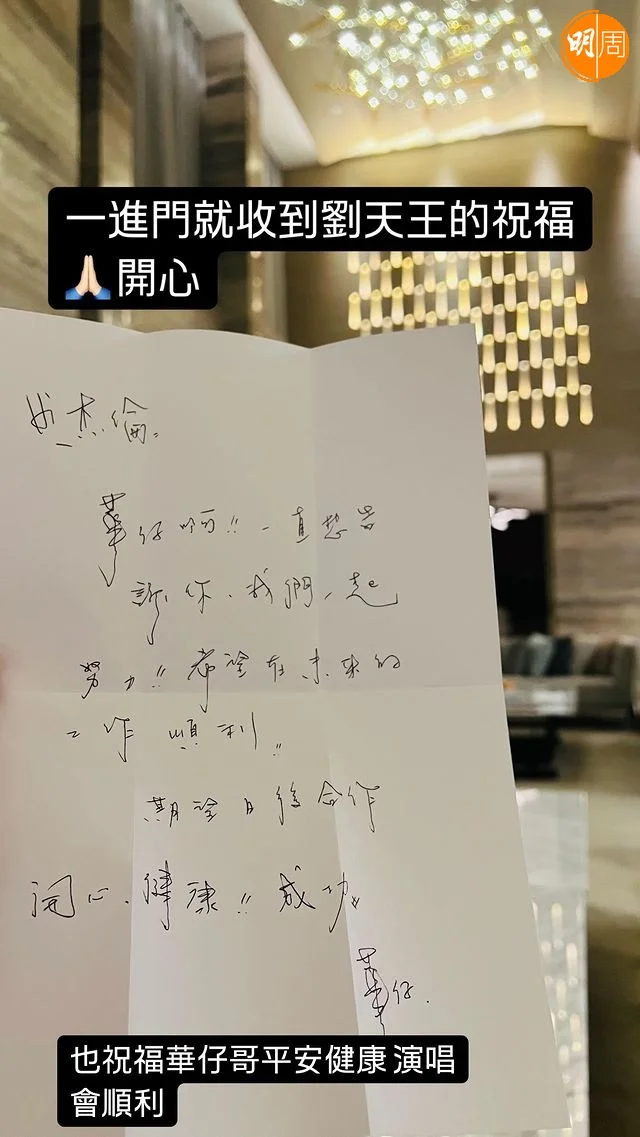 明周
一進門就收到劉天王的祝福
🙏🏻開心
杰倫。
華仔 !! 一直想告
訴你、我們一起
努力!! 希望在未來的
工作順利!!
期望日後合作
開心、健康!! 成功!!
華仔.
也祝福華仔哥平安健康 演唱
會順利